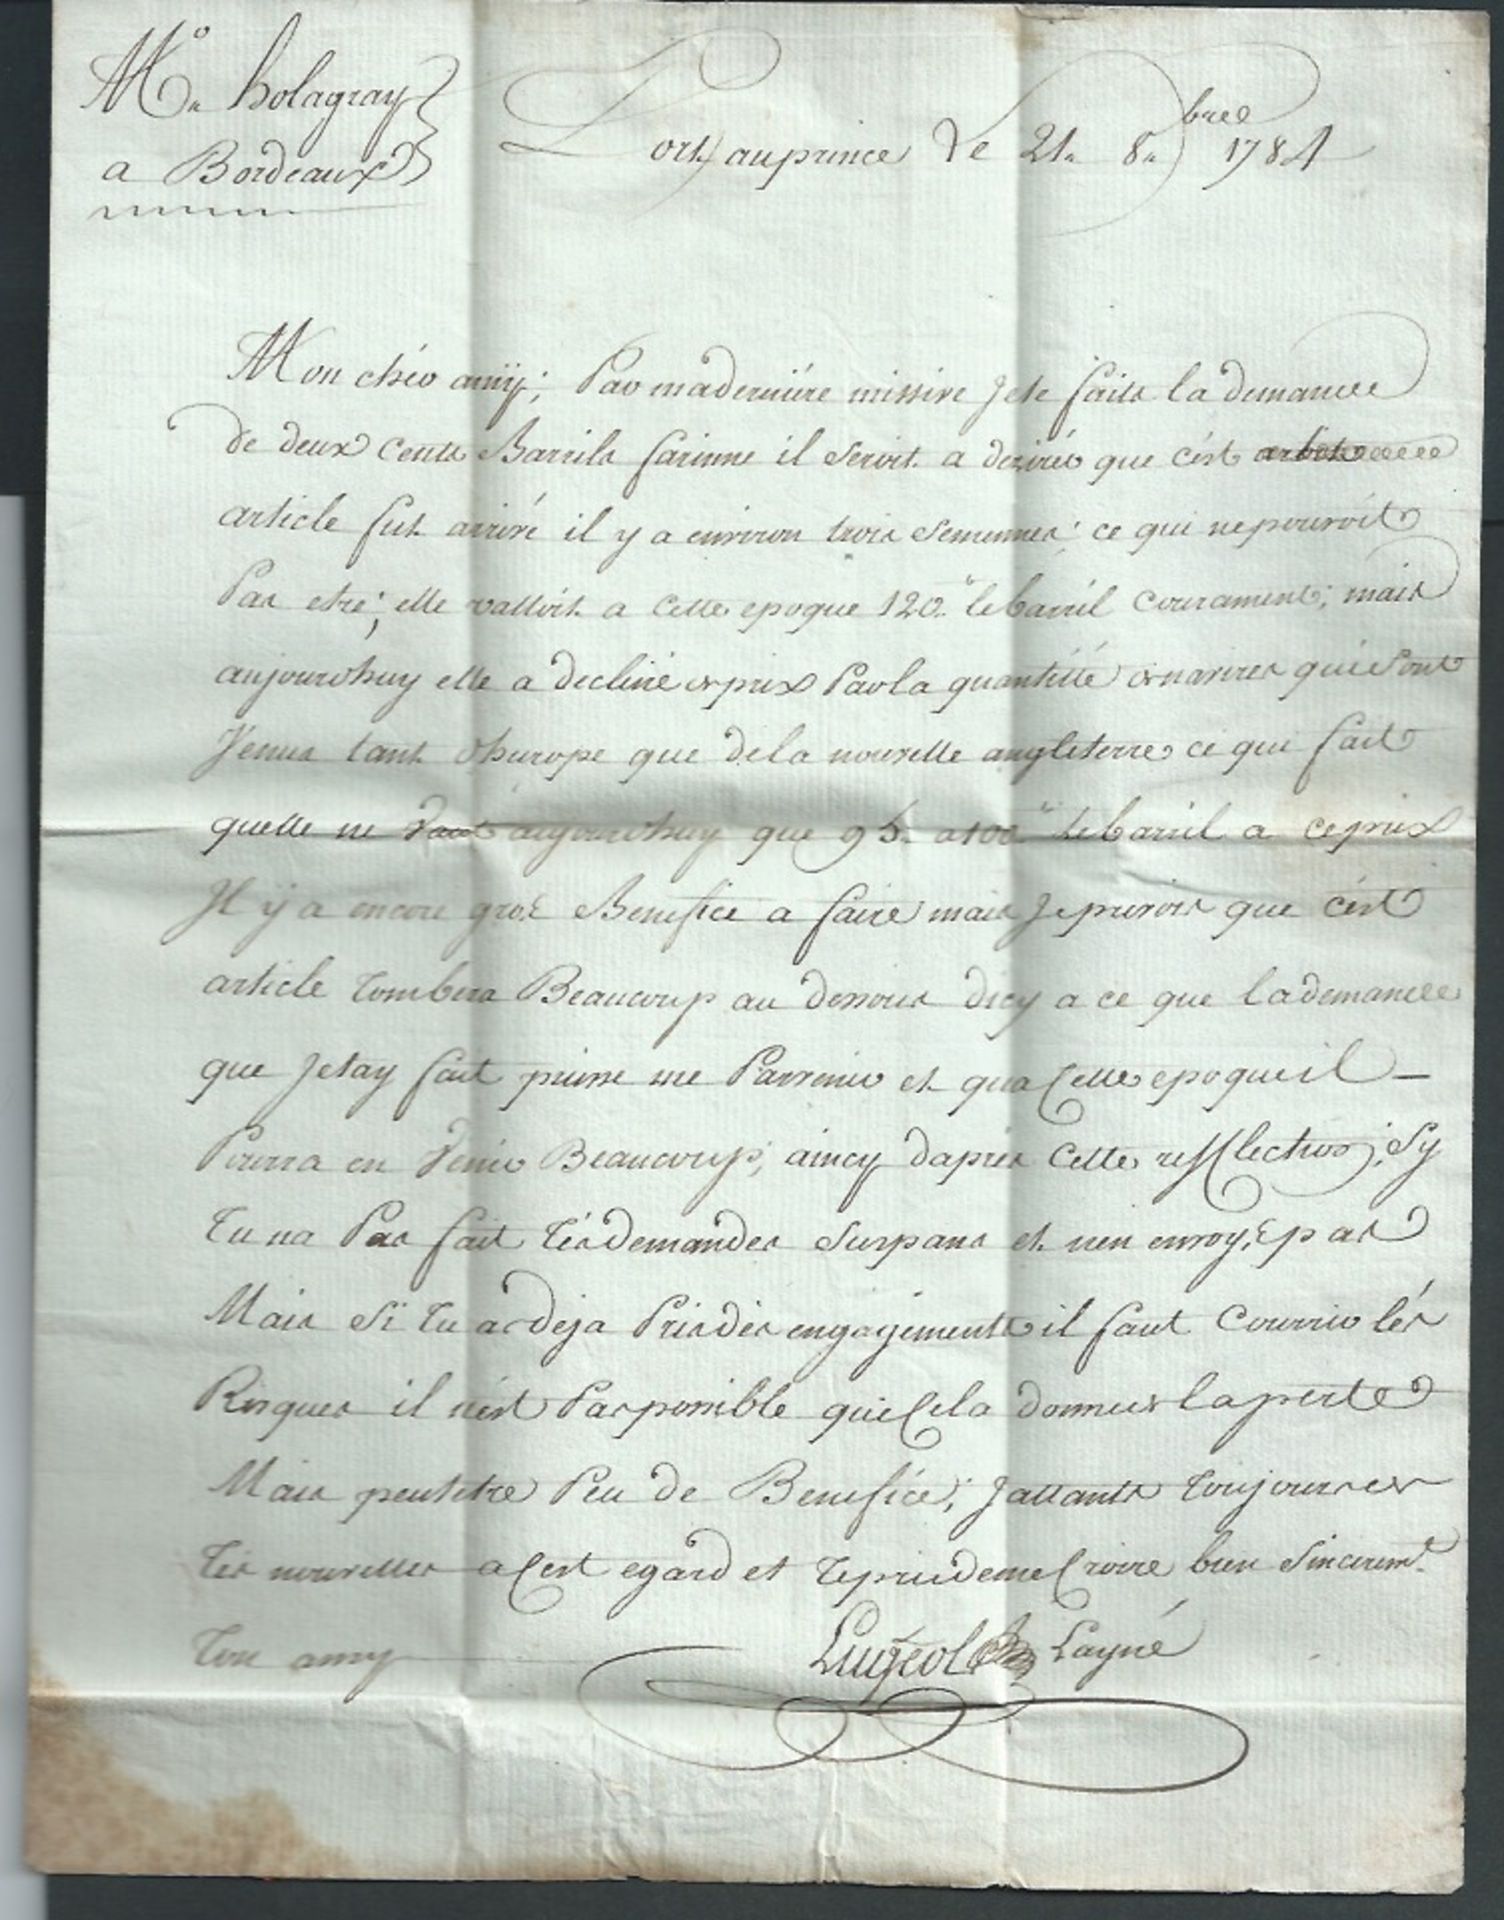 Mr. holagray
a Bordeaux
Port auprince Le 21. 8.bree 1784
Mon chér amÿ; Par maderniére missive Jete faits la demandee
de deux Cents Barrils farinne il Seroit a deziréé que cést
article fut arrivé il y a environ trois Semennes; ce qui nepouroit
Pas etre; elle valloit a Cette epoque 120.tt lebarril Courament; mais
aujourdhuy elle a decliné de prix Par la quantitté de navires qui Sont
Venus tant dhurope que dela nouvelle angleterre ce qui fait
quelle ne Vaut aujourdhuy que 95. a100.tt lebarril a ceprix
Il y a encore gros Benefice a faire mais Jeprevois que cést
article tombera Beaucoup au dessous dicy a ce que lademandee
que Jetay fait puisse me Parvenir et qua Cette epoque il
Pourra en Venir Beaucoup; aincy daprés Cette refflection; Sy
tu na Pas fait tésdemandes Suspans et nen envoyé pas
Mais Si tu as deja Prisdés engagements il faut Courrir lés
Risques il nést Paspossible que Cela donne de laperte
Mais peutetre Peu de Benefice; Jattants toujours de
tés nouvelles a Cest egard et tepriedeme Croire bien Sincerem.t
ton amy Lugeol Layné